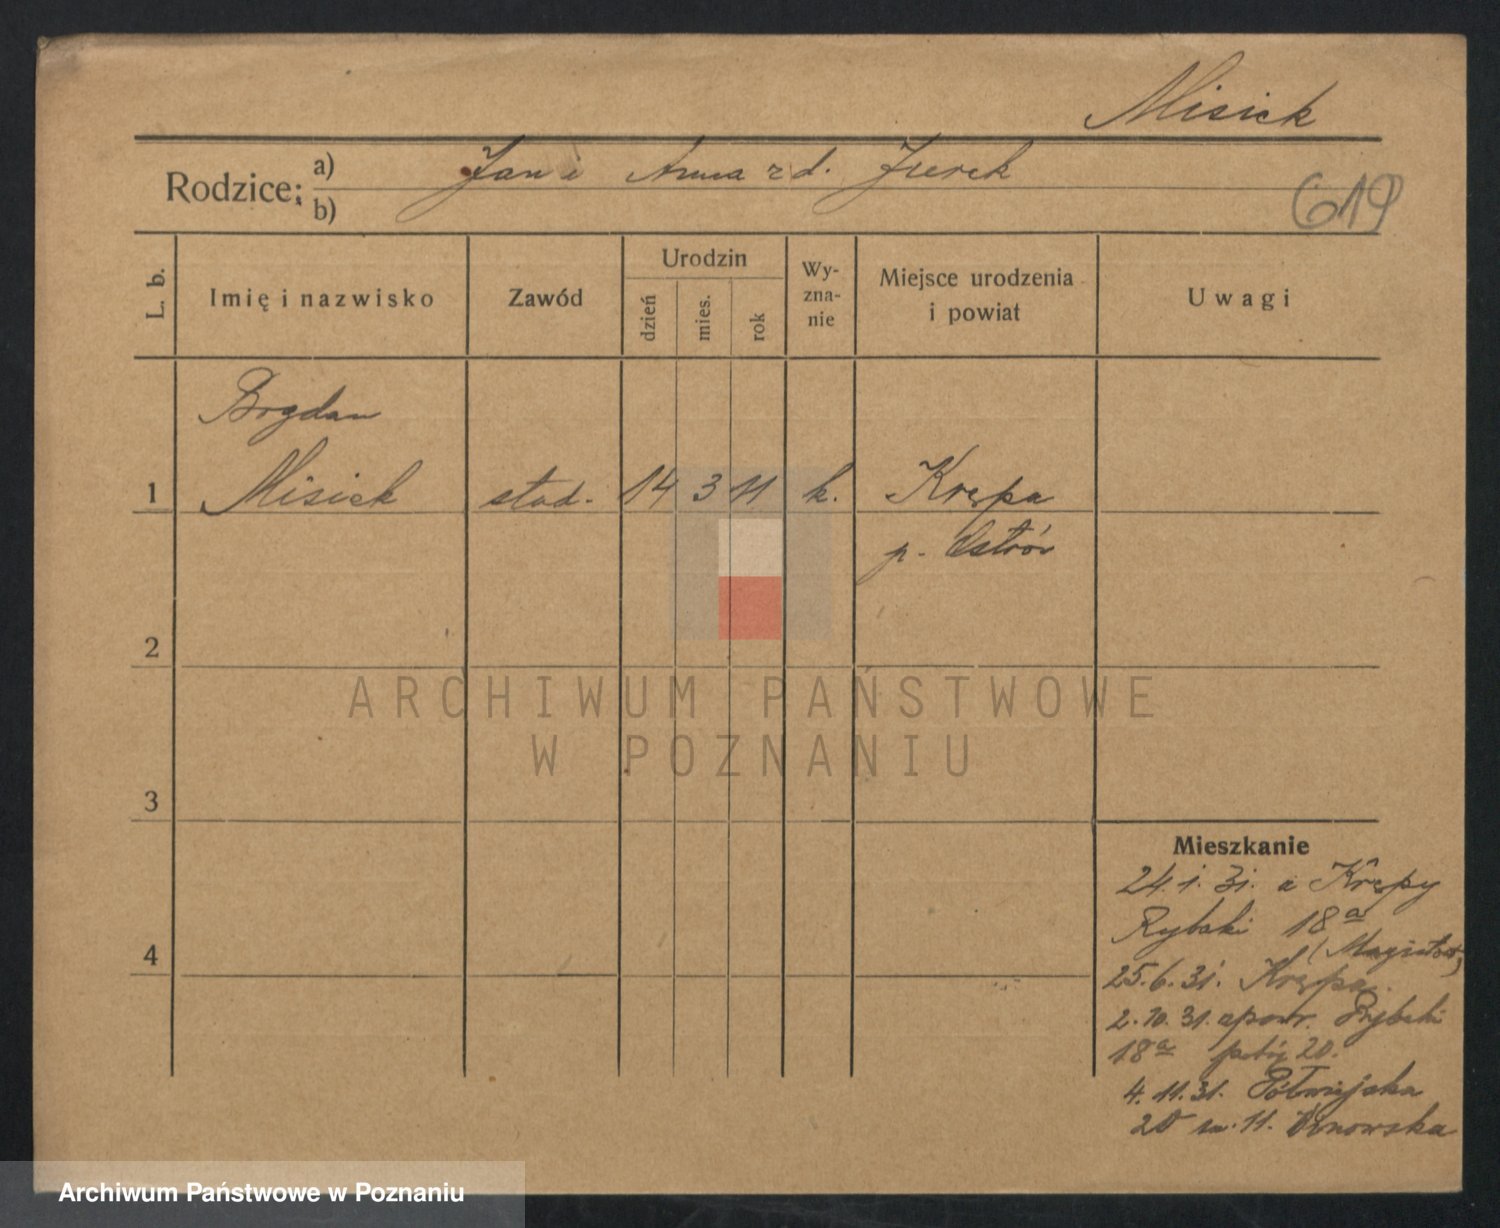 Misiek
Rodzice: a) Jan i Anna z d. Jurek
b)
619
L. b.
Imię i nazwisko
Zawód
Urodzin
dzień
mies.
rok
Wy-
zna-
nie
Miejsce urodzenia
i powiat
Uwagi
Bogdan
1 Misiek stud. 14 3 11 k. Krępa
p. Ostrów
2
ARCHIWUM PAŃSTWOWE
W POZNANIU
3
Mieszkanie
24.1.31. z Krępy
Rybaki 18a
4
25.6.31. Krępa
2.10.31. Rybaki
18a 20.
4.11.31. Półwiejska
20 m. 11.
Archiwum Państwowe w Poznaniu